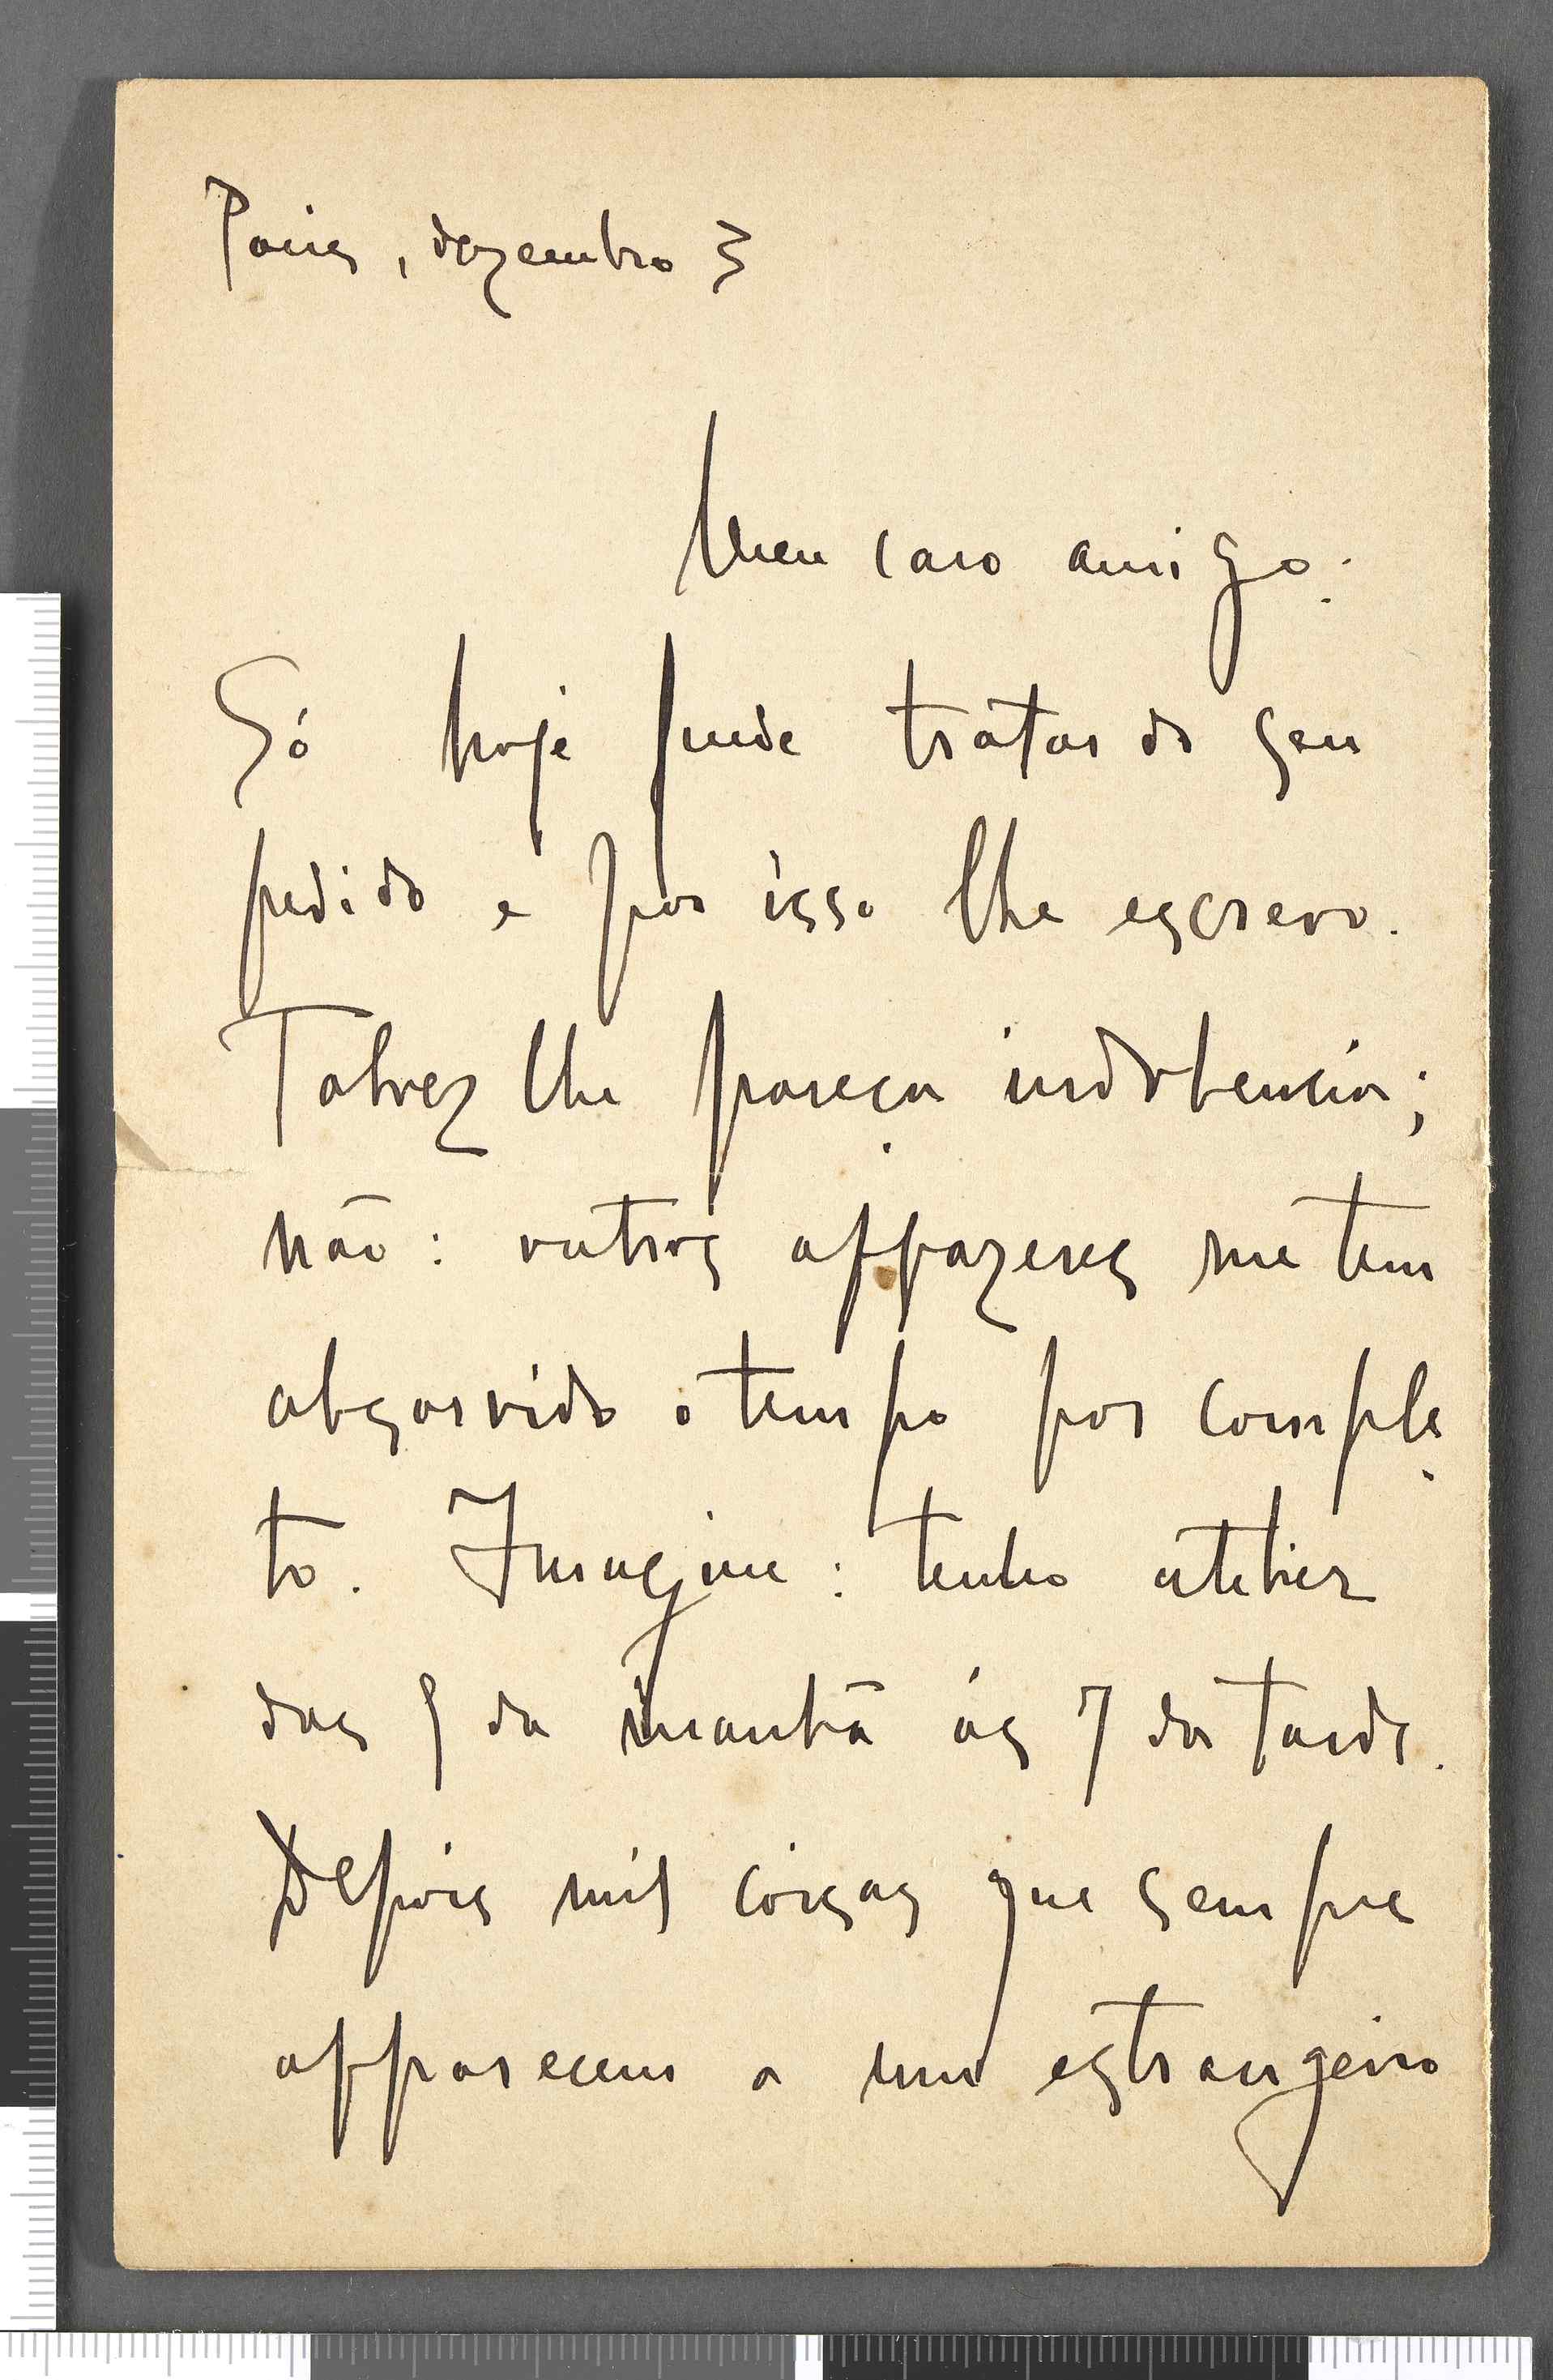 Paris, dezembro 3
Meu caro amigo:
Só hoje pude tratar do seu
pedido e por isso lhe escrevo.
Talvez lhe pareça indolencia;
não: outros affazeres me tem
absorvido o tempo por comple
to. Imagine: tenho atelier
das 9 da manhã ás 7 da tarde.
Depois mil coisas que sempre
apparecem a um estrangeiro